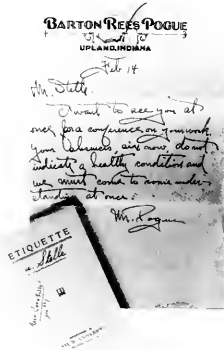 BARTON REES POGUE
UPLAND, INDIANA
Feb 14
Mr. Stelle.
I want to see you at
once for a conference on your work.
Your absences, six now, do not
indicate a healthy condition and
we must come to some under-
standing at once.
Mr. Pogue
ETIQUETTE
Stelle